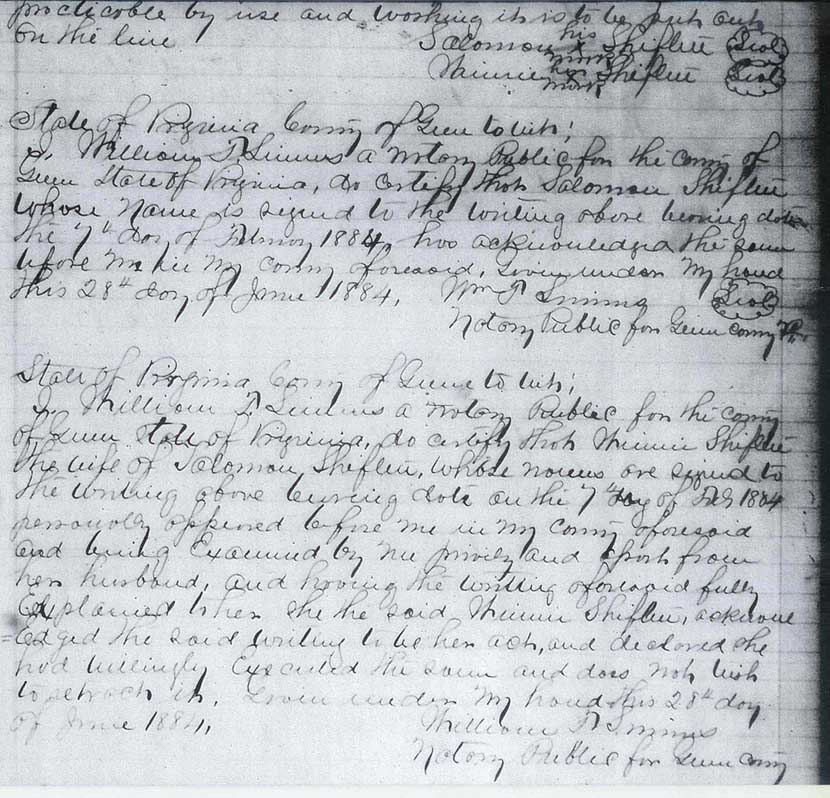 practicable by use and working it is to be put out
on the line
his
Salomon x Shiflett Seal
mark
her
Minnie x Shiflett Seal
mark
State of Virginia County of Green to wit;
I, William T. Simms a Notary Public for the county of
Green State of Virginia, do certify that Salomon Shiflett
whose Name is signed to the writing above bearing date
the 7th day of February 1884, has acknowledged the same
before me in my county aforesaid, Given under my hand
this 28th day of June 1884, Wm T Simms Seal
Notary Public for Green county Va.
State of Virginia County of Green to wit;
I, William T Simms a Notary Public for the county
of Green State of Virginia, do certify that Minnie Shiflett
the wife of Salomon Shiflett, whose names are signed to
the writing above bearing date on the 7th day of Feb 1884
personally appeared before me in my county aforesaid
and being Examined by me privily and apart from
her husband, and having the writing aforesaid fully
Explained to her she the said Minnie Shiflett, acknowl
=edged the said writing to be her act, and declared she
had willingly Executed the same and does not wish
to retract it, Given under my hand this 28th day
of June 1884,
William T Simms
Notary Public for Green county